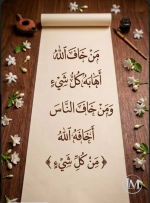 مَنْ خَافَ اللهَ
أَهَابَهُ كُلُّ شَيْءٍ
وَمَنْ خَافَ النَّاسَ
أَخَافَهُ اللهُ
﴿ مِنْ كُلِّ شَيْءٍ ﴾
M